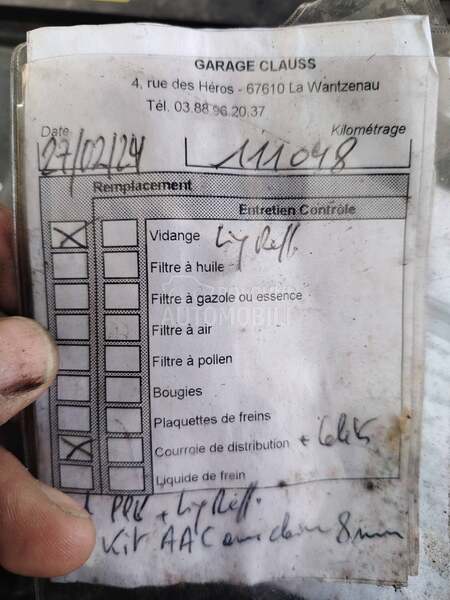 GARAGE CLAUSS
4, rue des Héros - 67610 La Wantzenau
Tél. 03.88.96.20.37
Date
Kilométrage
27/02/24
111048
Remplacement
Entretien Contrôle
Vidange Liq Reff.
Filtre à huile
Filtre à gazole ou essence
AUTOMOBILI
Filtre à air
Filtre à pollen
Bougies
Plaquettes de freins
Courroie de distribution +
Liquide de frein
+ Liq Reff.
Kit AAC 8mm